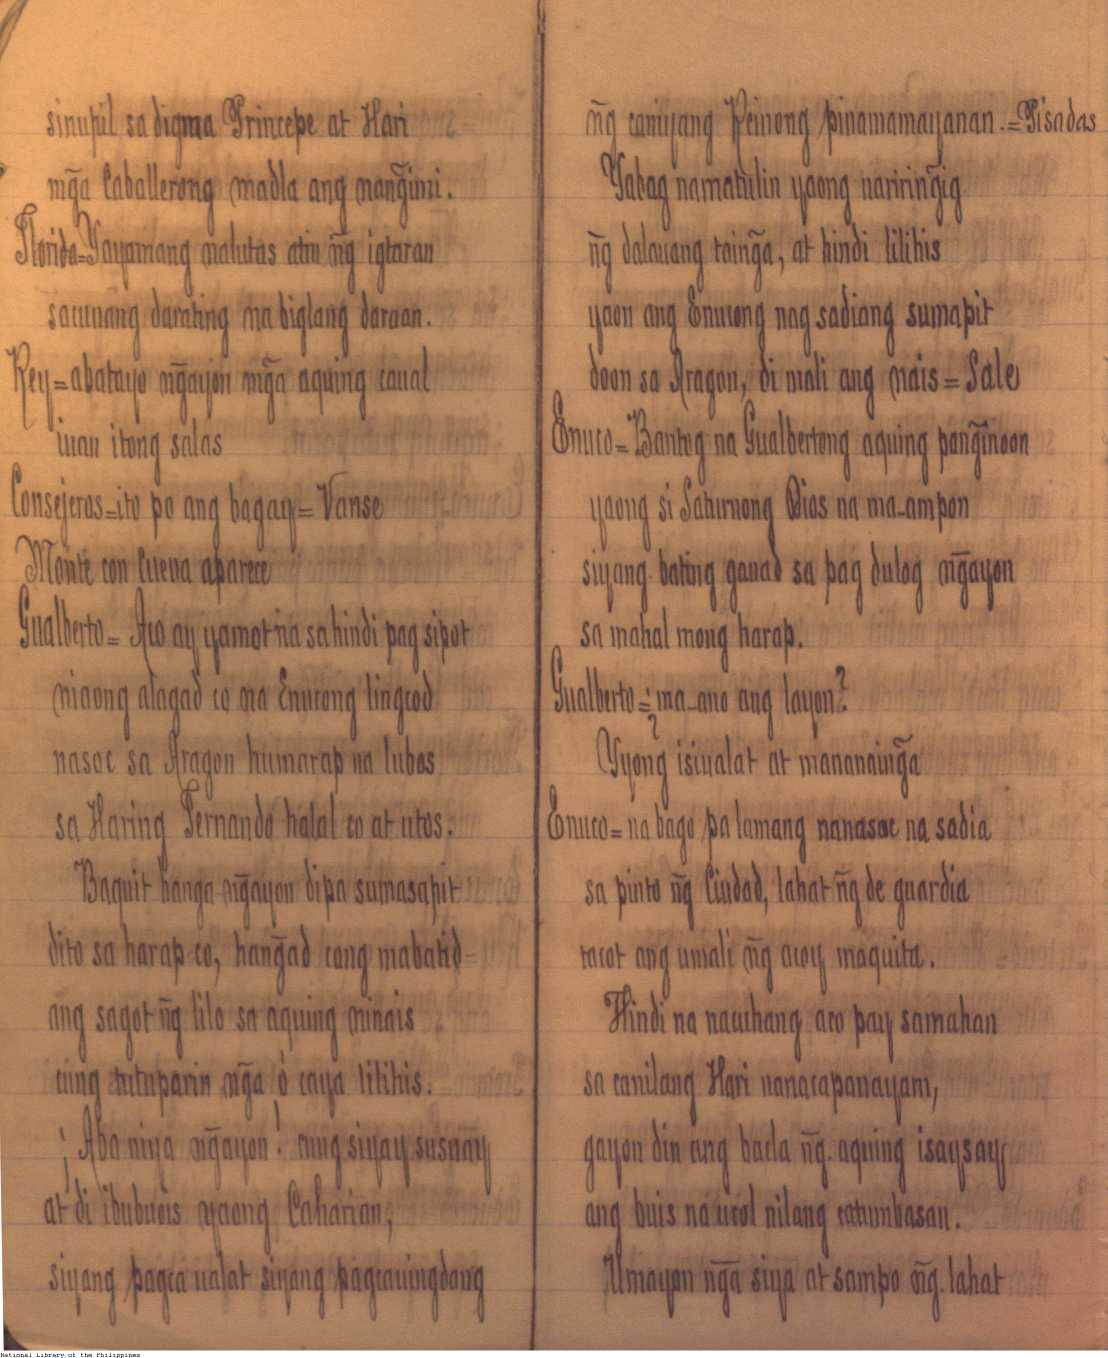 sinupil sa digma Princepe at Hari
mg̃a Caballerong madla ang nang̃imi.
Florida=Yayamang malutas atin ng̃ igtaran
sacunang darating na biglang daraan.
Rey=abatayo ng̃ayon mg̃a aquing caual
iuan itong salas
Consejeros=ito po ang bagay=Vanse
Monte con Cueva aparece
Gualberto= Aco ay yamot na sa hindi pag sipot
niaong alagad co na Enucong lingcod
nasoc sa Aragon humarap na lubos
sa Haring Fernando halal co at utos.
Baquit hanga ng̃ayon dipa sumasapit
dito sa harap co, hang̃ad cong mabatid-
ang sagot ng̃ lilo sa aquing ninais
cung tutuparin ng̃a ó caya lilihis.
¡Aba niya ng̃ayon! cung siyay susuay
at di ibubuis yaong Caharian,
siyang pagca ualat siyang pagcauingdang
ng̃ caniyang Reinong pinamamayanan.=Pisadas
Yabag namatulin yaong naririn̄gig
ng̃ dalauang taing̃a, at hindi lilihis
yaon ang Enucong nag sadiang sumapit
doon sa Aragon, di mali ang náis=Sale
Enuco=Bantog na Gualbertong aquing pang̃inoon
yaong si Saturnong Dios na ma-ampon
siyang bating gauad sa pag dulog ng̃ayon
sa mahal mong harap.
Gualberto=¿ma-ano ang layon?
Yyong isiualat at mananaing̃a
Enuco=na bago pa lamang nanasoc na sadia
sa pinto ng̃ Ciudad, lahat ng̃ de guardia
tacot ang umali ng̃ acoy maquita.
Hindi na nacuhang aco pay samahan
sa canilang Hari nanacapanayam,
gayon din ang bacla ng̃. aquing isaysay
ang buis na ucol nilang catumbasan.
Umayon ng̃a siya at sampo ng̃. lahat
National Library of the Philippines